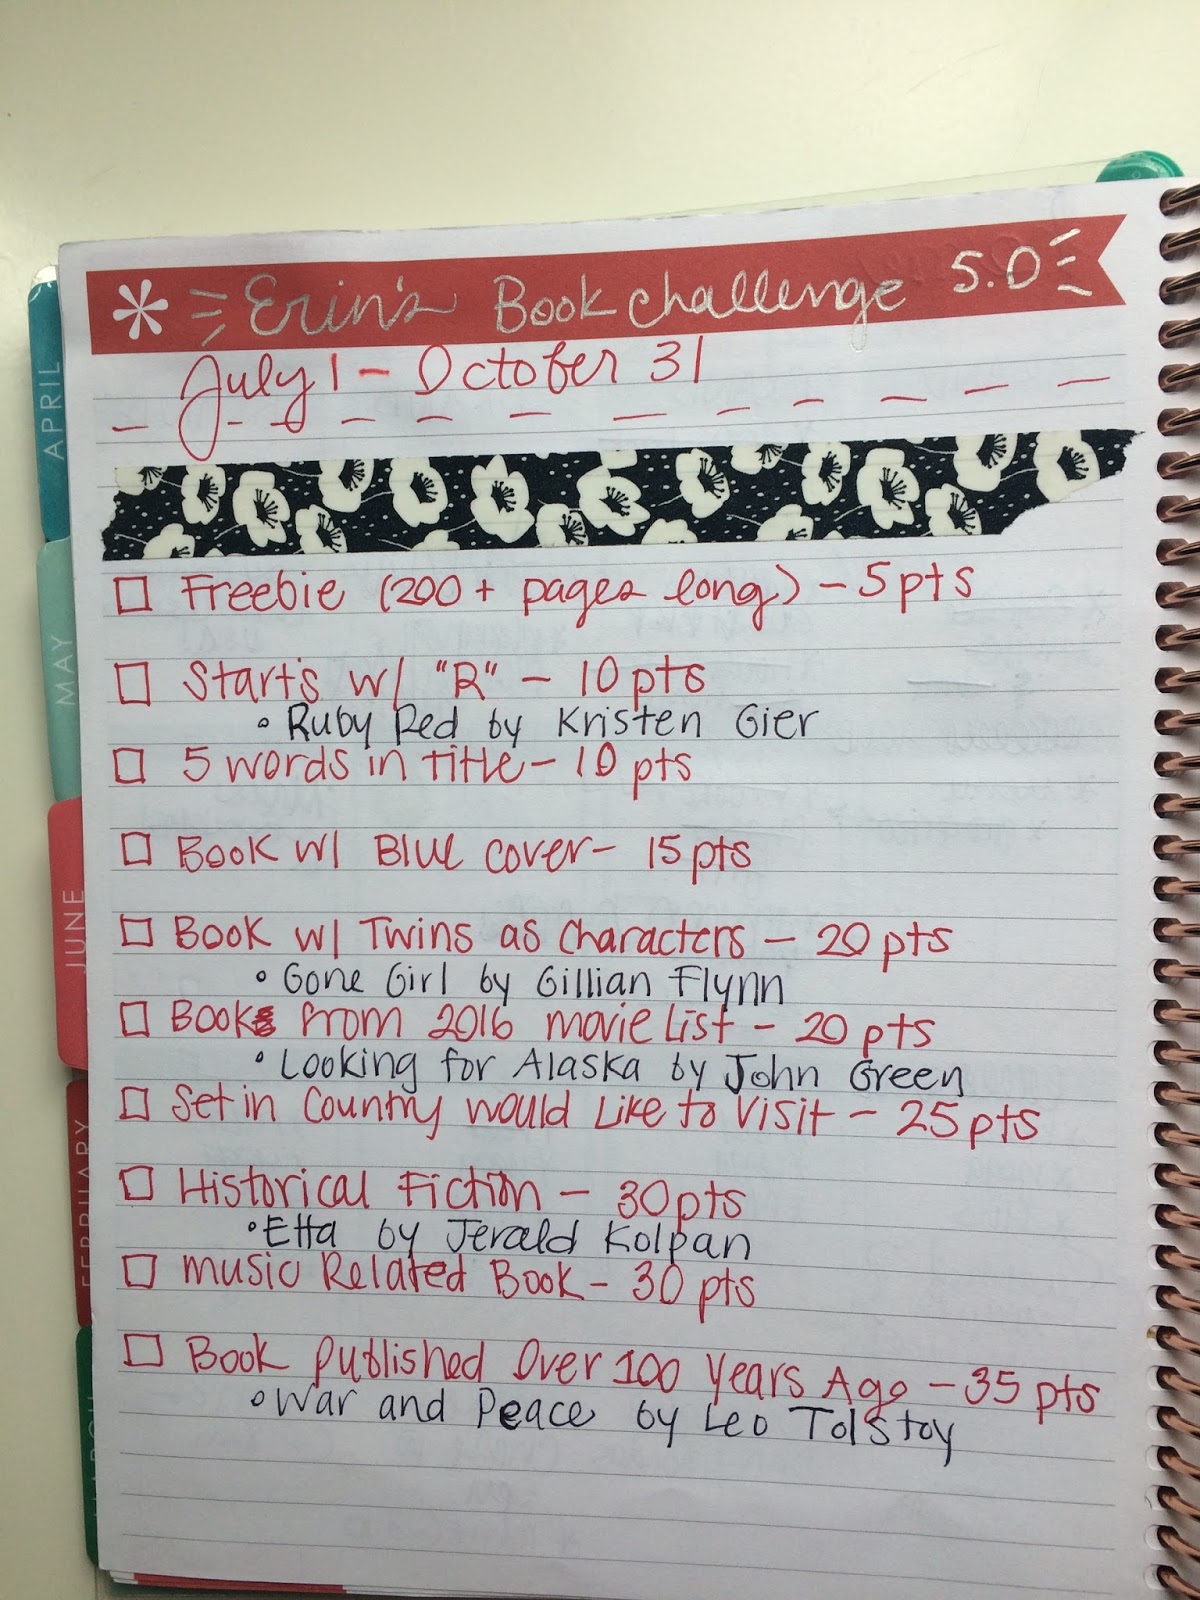 Erin's Book Challenge 5.0
July 1 - October 31
Freebie (200+ pages long) - 5pts
Starts w/ "R" - 10 pts
• Ruby Red by Kristen Gier
5 words in title - 10 pts
Book w/ Blue cover - 15 pts
Book w/ Twins as characters - 20 pts
• Gone Girl by Gillian Flynn
Book from 2016 movie list - 20 pts
• Looking for Alaska by John Green
Set in Country would Like to visit - 25 pts
Historical Fiction - 30 pts
• Etta by Jerald Kolpan
music Related Book - 30 pts
Book published Over 100 Years Ago - 35 pts
• War and Peace by Leo Tolstoy
APRIL
MAY
JUNE
FEBRUARY